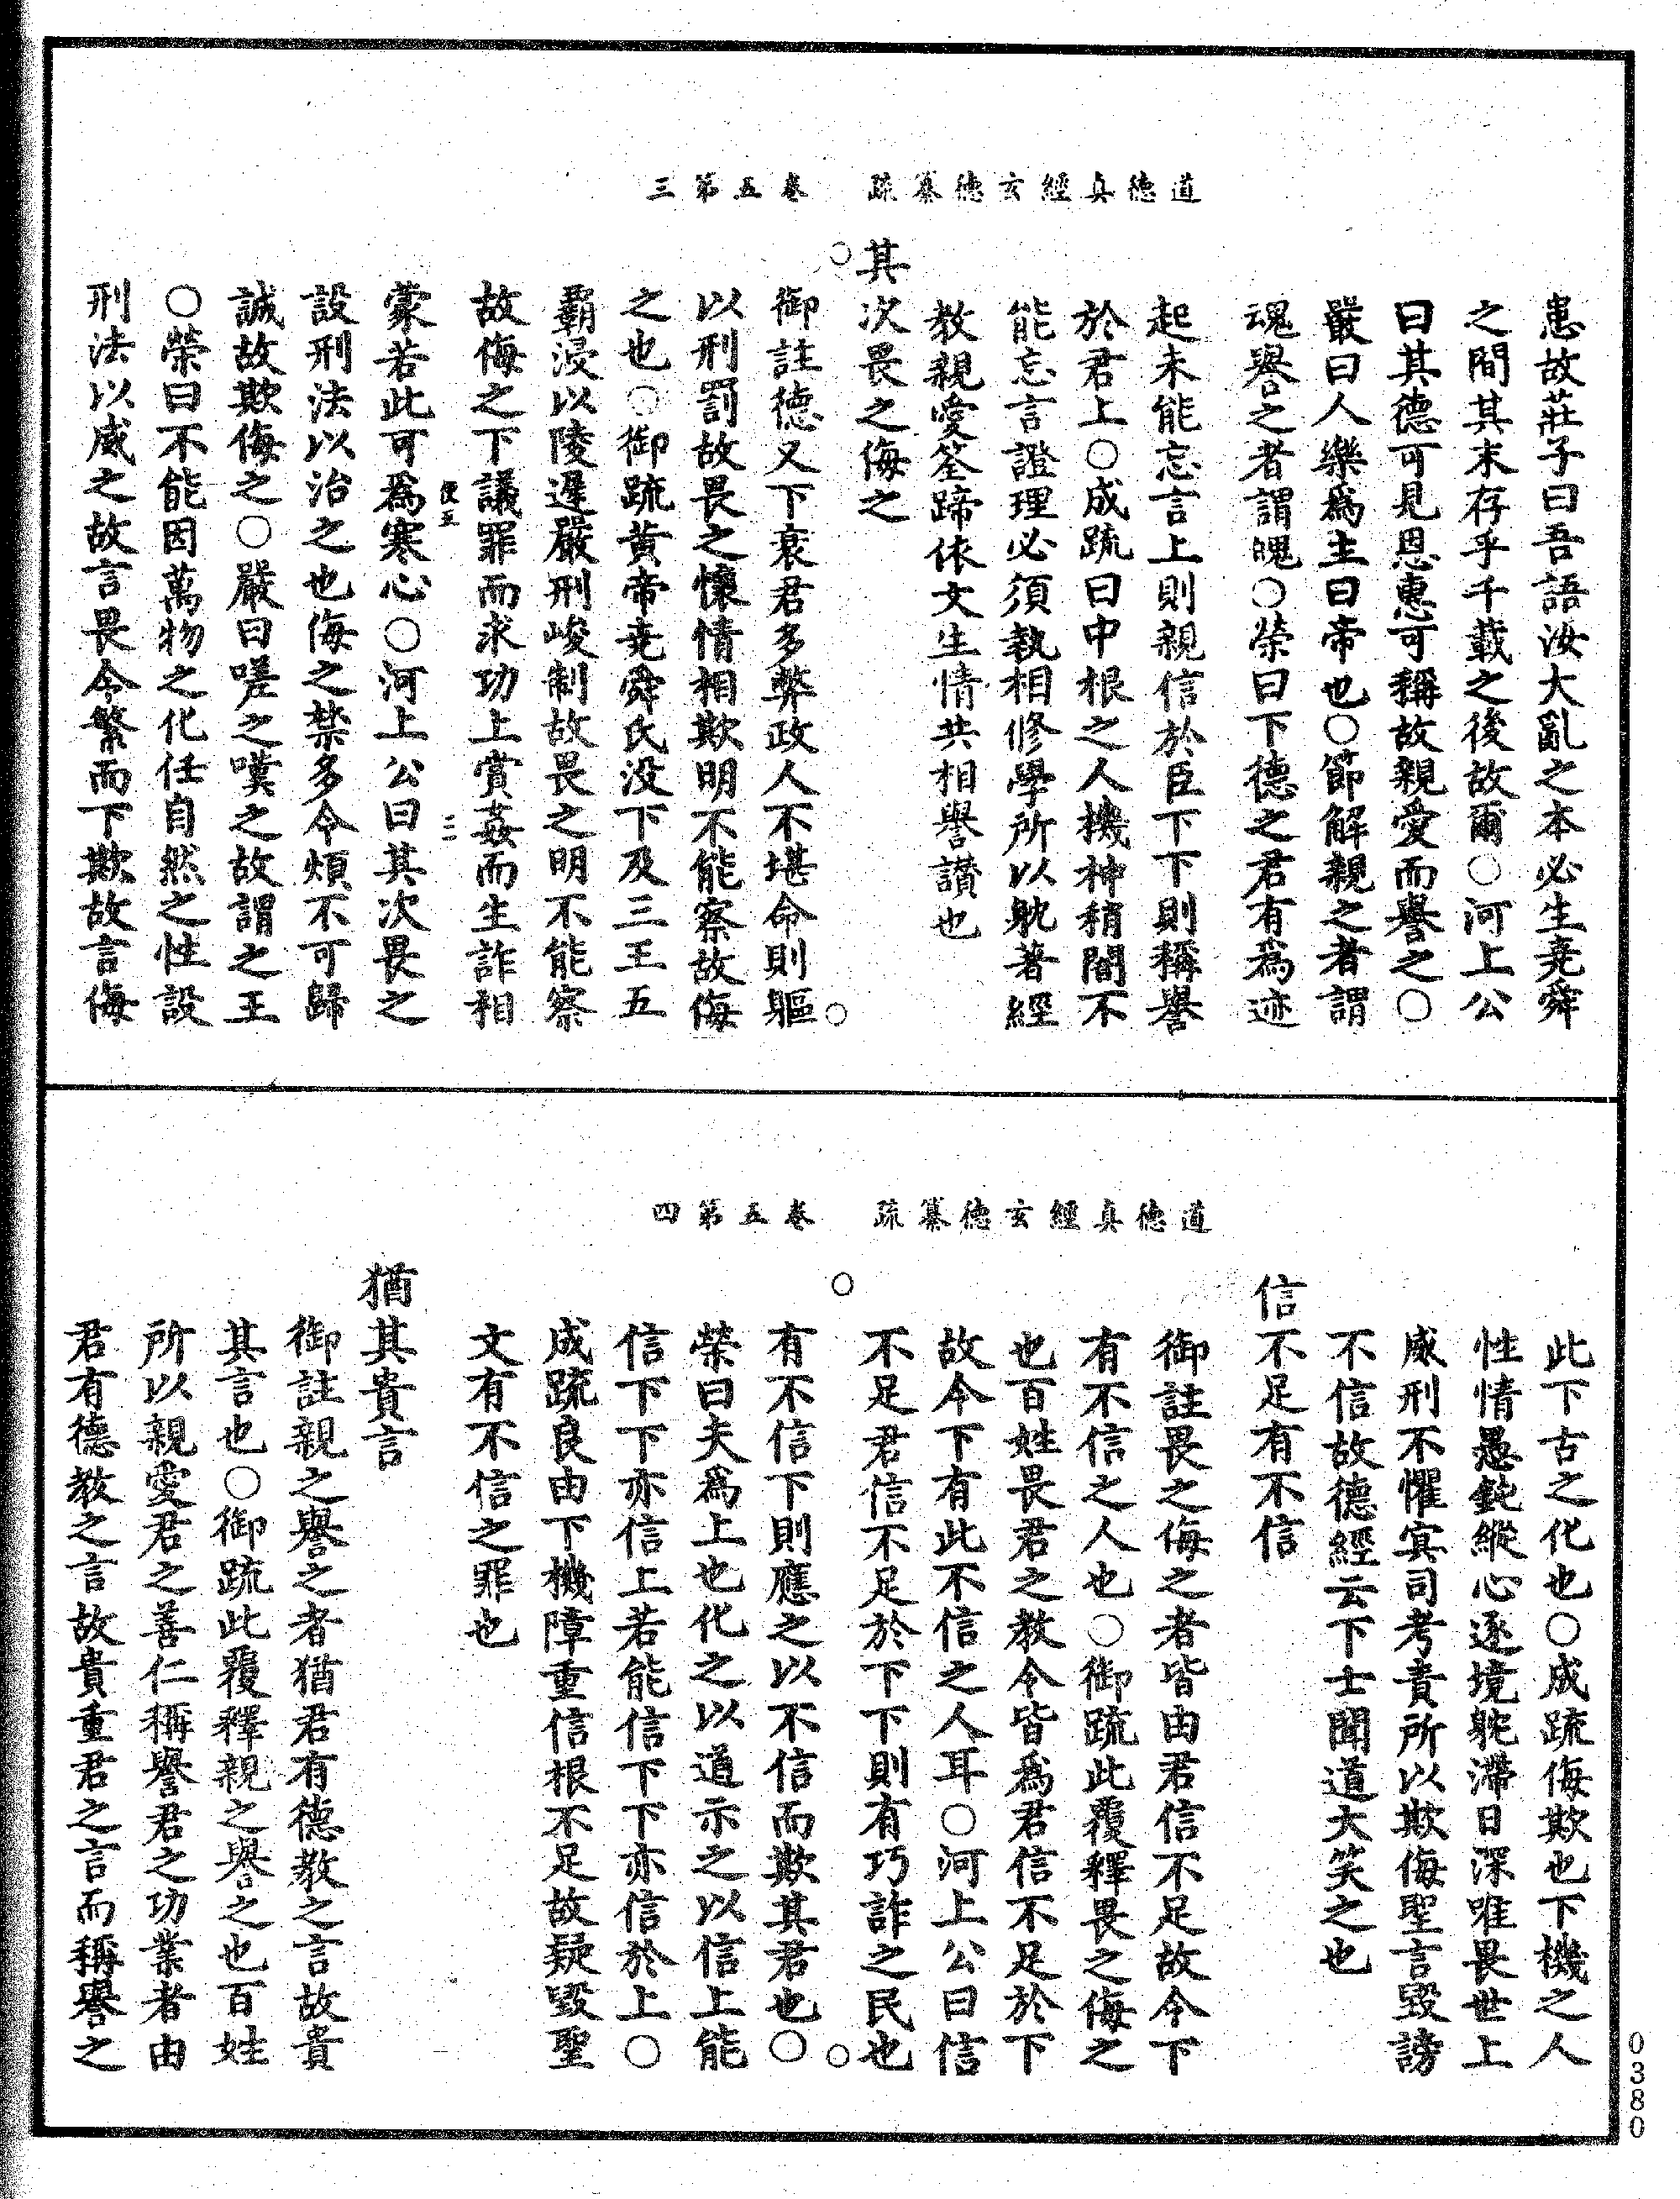 道德真經玄德纂疏　卷五第三
患故莊子曰吾語汝大亂之本必生堯舜
之間其末存乎千載之後故爾○河上公
曰其德可見恩惠可稱故親愛而譽之○
嚴曰人樂爲主曰帝也○節解親之者謂
魂譽之者謂魄○榮曰下德之君有爲迹
起未能忘言上則親信於臣下下則稱譽
於君上○成疏曰中根之人機神稍闇不
能忘言證理必須執相修學所以躭著經
教親愛筌蹄依文生情共相譽讃也
其次畏之侮之
御註德又下衰君多弊政人不堪命則驅
以刑罰故畏之懷情相欺明不能察故侮
之也○御疏黄帝堯舜氏没下及三王五
霸浸以陵遲嚴刑峻制故畏之明不能察
故侮之下議罪而求功上賞姦而生詐相
蒙若此可爲寒心○河上公曰其次畏之
設刑法以治之也侮之禁多令煩不可歸
誠故欺侮之○嚴曰嗟之嘆之故謂之王
○榮曰不能因萬物之化任自然之性設
刑法以威之故言畏令繁而下欺故言侮
道德真經玄德纂疏　卷五第四
此下古之化也○成疏侮欺也下機之人
性情愚鈍縱心逐境躭滯日深唯畏世上
威刑不懼冥司考責所以欺侮聖言毁謗
不信故德經云下士聞道大笑之也
信不足有不信
御註畏之侮之者皆由君信不足故令下
有不信之人也○御疏此覆釋畏之侮之
也百姓畏君之教令皆爲君信不足於下
故令下有此不信之人耳○河上公曰信
不足君信不足於下下則有巧詐之民也
有不信下則應之以不信而欺其君也○
榮曰夫爲上也化之以道示之以信上能
信下下亦信上若能信下下亦信於上○
成疏良由下機障重信根不足故疑毁聖
文有不信之罪也
猶其貴言
御註親之譽之者猶君有德教之言故貴
其言也○御疏此覆釋親之譽之也百姓
所以親愛君之善仁稱譽君之功業者由
君有德教之言故貴重君之言而稱譽之
0380